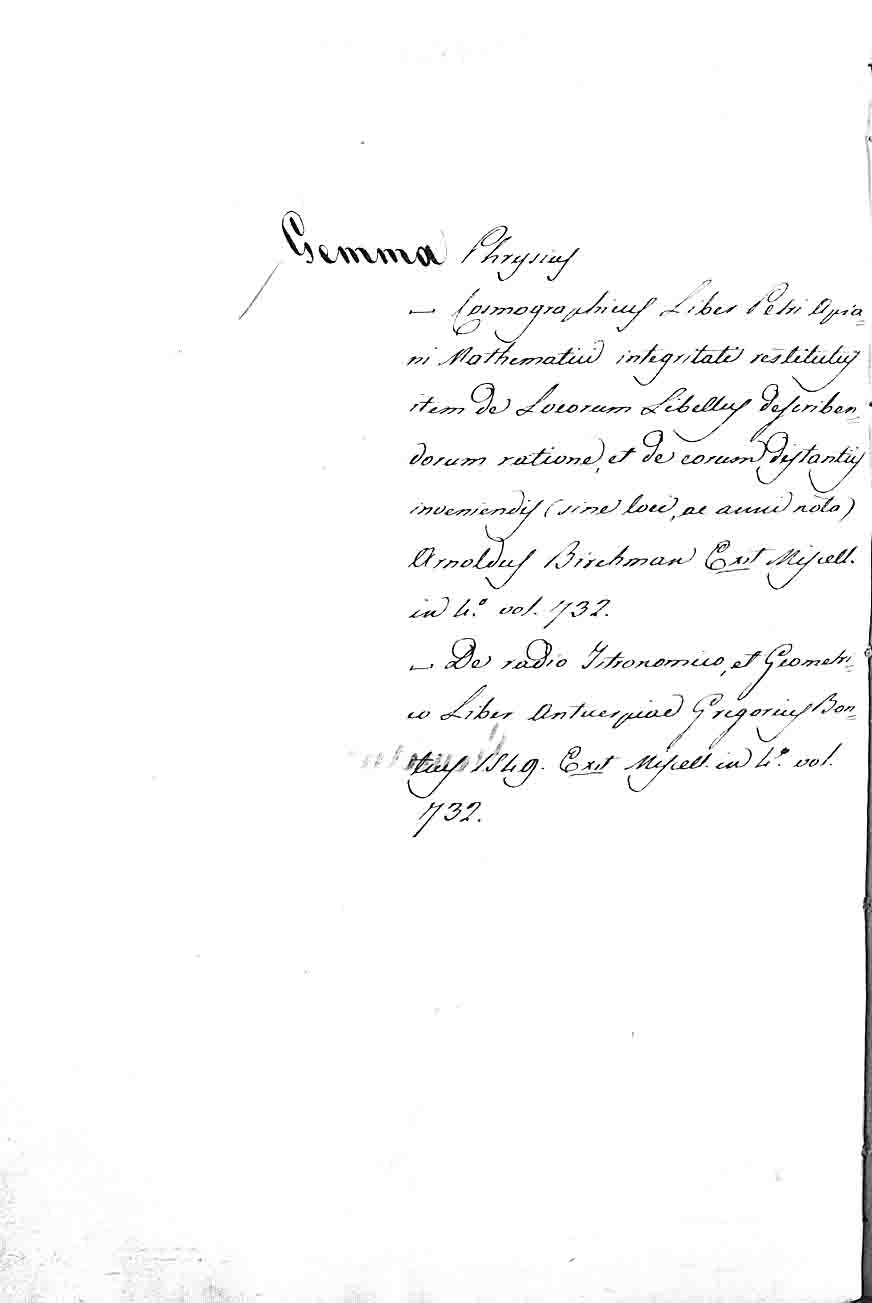 Gemma Phrysius
— Cosmographicus Liber Petri Apia=
ni Mathematici integritati restitutus
item de Locorum Libellus describen=
dorum ratione, et de eorum distantiis
inveniendis (sine loci, ac anni nota)
Arnoldus Birchman Exit Miscell.
in 4.º vol. 732.
— De radio Istronomico, et Geometri=
co Liber Antuerpiae Gregorius Bon=
tius 1549. Exit Miscell. in 4.º vol.
732.